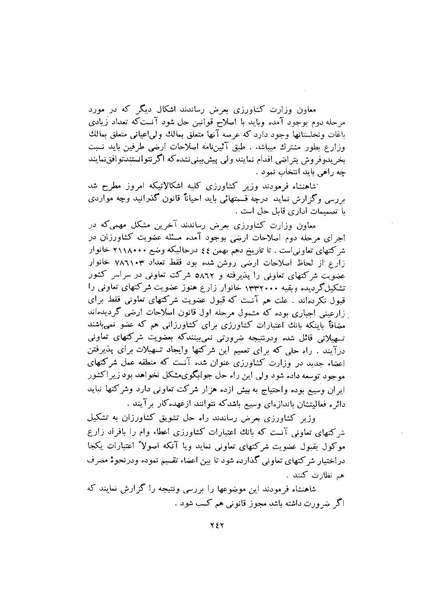 معاون وزارت کشاورزی بعرض رساندند اشکال دیگر که در مورد
مرحله دوم بوجود آمده وباید با اصلاح قوانین حل شود آنست‌که تعداد زیادی
باغات ونخلستانها وجود دارد که عرصه آنها متعلق بمالك ولی‌اعیانی متعلق بمالك
وزارع بطور مشترك میباشد . طبق آئین‌نامه اصلاحات ارضی طرفین باید نسبت
بخریدوفروش بتراضی اقدام نمایند ولی پیش‌بینی‌نشده‌که اگرنتوانستندتوافق‌نمایند
چه راهی باید انتخاب نمود .
شاهنشاه فرمودند وزیر کشاورزی کلیه اشکالاتیکه امروز مطرح شد
بررسی وگزارش نماید درچه قسمتهائی باید احیاناً قانون گذرانید وچه مواردی
با تصمیمات اداری قابل حل است .
معاون وزارت کشاورزی بعرض رساندند آخرین مشکل مهمی‌که در
اجرای مرحله دوم اصلاحات ارضی بوجود آمده مسئله عضویت کشاورزان در
شرکتهای تعاونی‌است . تا تاریخ دهم بهمن ٤٤ درحالیکه وضع ۲۱۱۸۰۰۰ خانوار
زارع از لحاظ اصلاحات ارضی روشن شده بود فقط تعداد ۷۸٦۱۰۳ خانوار
عضویت شرکتهای تعاونی را پذیرفته و ٥٨٦٢ شرکت تعاونی در سراسر کشور
تشکیل‌گردیده وبقیه ۱۳۳۲۰۰۰ خانوار زارع هنوز عضویت شرکتهای تعاونی را
قبول نکرده‌اند . علت هم آنست که قبول عضویت شرکتهای تعاونی فقط برای
زارعینی اجباری بوده که مشمول مرحله اول قانون اصلاحات ارضی گردیده‌اند
مضافاً باینکه بانك اعتبارات کشاورزی برای کشاورزانی هم که عضو نمی‌باشند
تسهیلاتی قائل شده ودرنتیجه ضرورتی نمی‌بینندکه بعضویت شرکتهای تعاونی
درآیند . راه حلی که برای تعمیم این شرکتها وایجاد تسهیلات برای پذیرفتن
اعضاء جدید در وزارت کشاورزی عنوان شده آنست که منطقه عمل شرکتهای
موجود توسعه داده شود ولی این راه حل جوابگوی‌مشکل نخواهد بود زیراکشور
ایران وسیع بوده واحتیاج به بیش ازده هزار شرکت تعاونی دارد وشرکتها نباید
دائره فعالیتشان باندازه‌ای وسیع باشدکه نتوانند ازعهده‌کار برآیند .
وزیر کشاورزی بعرض رساندند راه حل تشویق کشاورزان به تشکیل
شرکتهای تعاونی آنست که بانك اعتبارات کشاورزی اعطاء وام را بافراد زارع
موکول بقبول عضویت شرکتهای تعاونی نماید ویا آنکه اصولا اعتبارات یکجا
دراختیار شرکتهای تعاونی گذارده شود تا بین اعضاء تقسیم نموده ودرنحوهٔ مصرف
هم نظارت کنند .
شاهنشاه فرمودند این موضوعها را بررسی ونتیجه را گزارش نمایند که
اگر ضرورت داشته باشد مجوز قانونی هم کسب شود .
٢٤٢